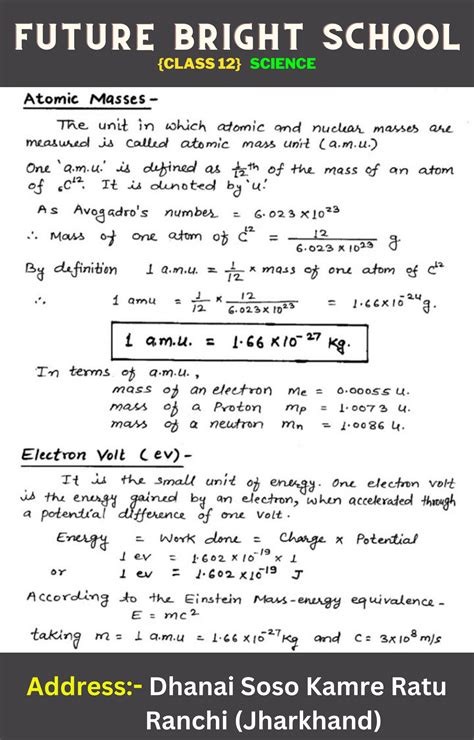 FUTURE BRIGHT SCHOOL
{CLASS 12} SCIENCE
Atomic Masses -
The unit in which atomic and nuclear masses are
measured is called atomic mass unit (a.m.u.)
One 'a.m.u.' is defined as 1/12 th of the mass of an atom
of ₆C¹². It is denoted by 'u'.
As Avogadro's number = 6.023 × 10²³
∴ Mass of one atom of C¹² = 12 / 6.023 × 10²³ g
By definition 1 a.m.u. = 1/12 × mass of one atom of C¹²
∴ 1 amu = 1/12 × 12 / 6.023 × 10²³ = 1.66 × 10⁻²⁴ g.
1 a.m.u. = 1.66 × 10⁻²⁷ kg.
In terms of a.m.u.,
mass of an electron me = 0.00055 u.
mass of a Proton mp = 1.0073 u.
mass of a neutron mn = 1.0086 u.
Electron Volt (ev) -
It is the small unit of energy. One electron volt
is the energy gained by an electron, when accelerated through
a potential difference of one volt.
Energy = Work done = Charge × Potential
1 ev = 1.602 × 10⁻¹⁹ × 1
or 1 ev = 1.602 × 10⁻¹⁹ J
According to the Einstein Mass-energy equivalence -
E = mc²
taking m = 1 a.m.u = 1.66 × 10⁻²⁷ kg and c = 3 × 10⁸ m/s
Address:- Dhanai Soso Kamre Ratu
Ranchi (Jharkhand)